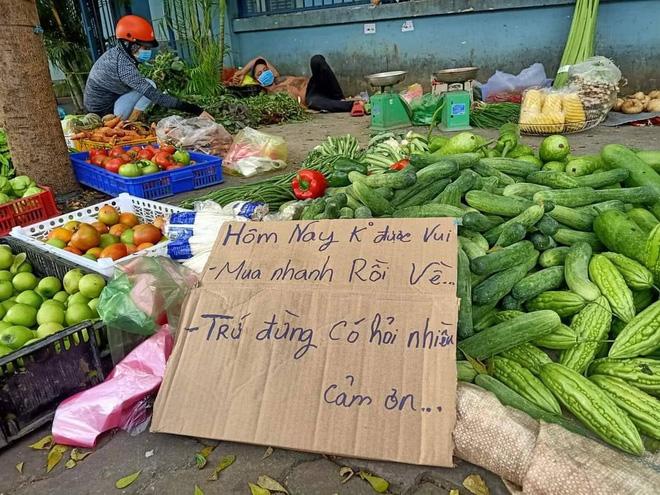 Hôm Nay K° được Vui
- Mua nhanh Rồi Về...
- Trứ đừng Có hỏi nhiều
Cảm ơn...